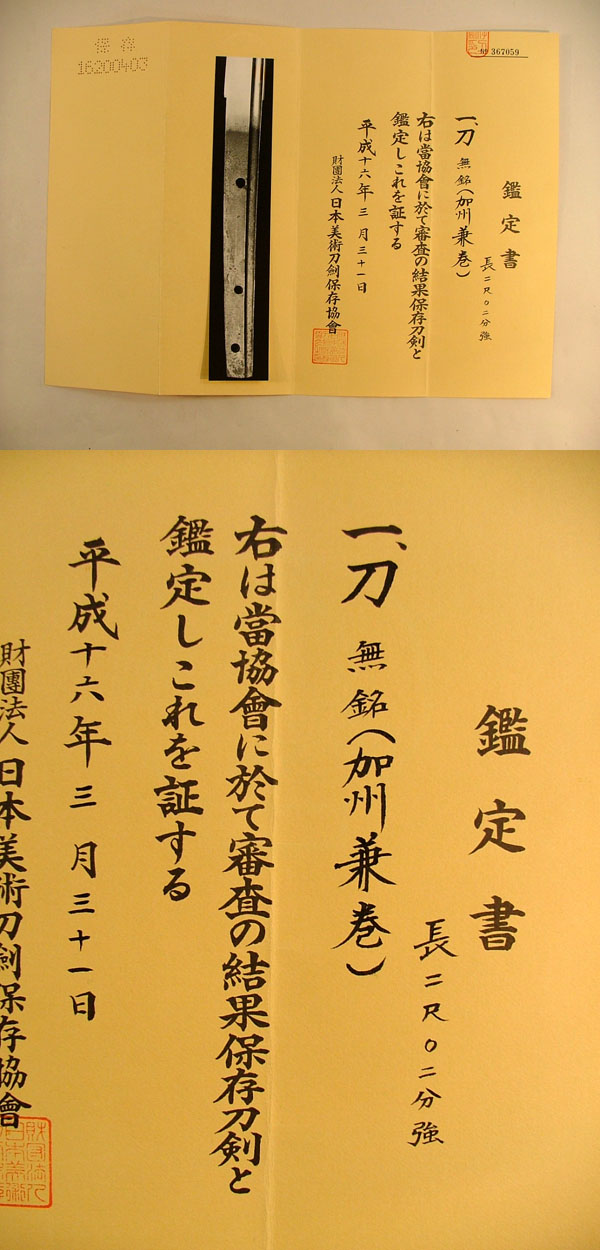 保存
16200403
№ 367059
鑑定書
長二尺〇二分強
一、刀 無銘(加州兼巻)
右は當協會に於て審査の結果保存刀剣と
鑑定しこれを証する
平成十六年三月三十一日
財團法人日本美術刀剣保存協會
鑑定書
長二尺〇二分強
一、刀 無銘(加州兼巻)
右は當協會に於て審査の結果保存刀剣と
鑑定しこれを証する
平成十六年三月三十一日
財團法人日本美術刀剣保存協會